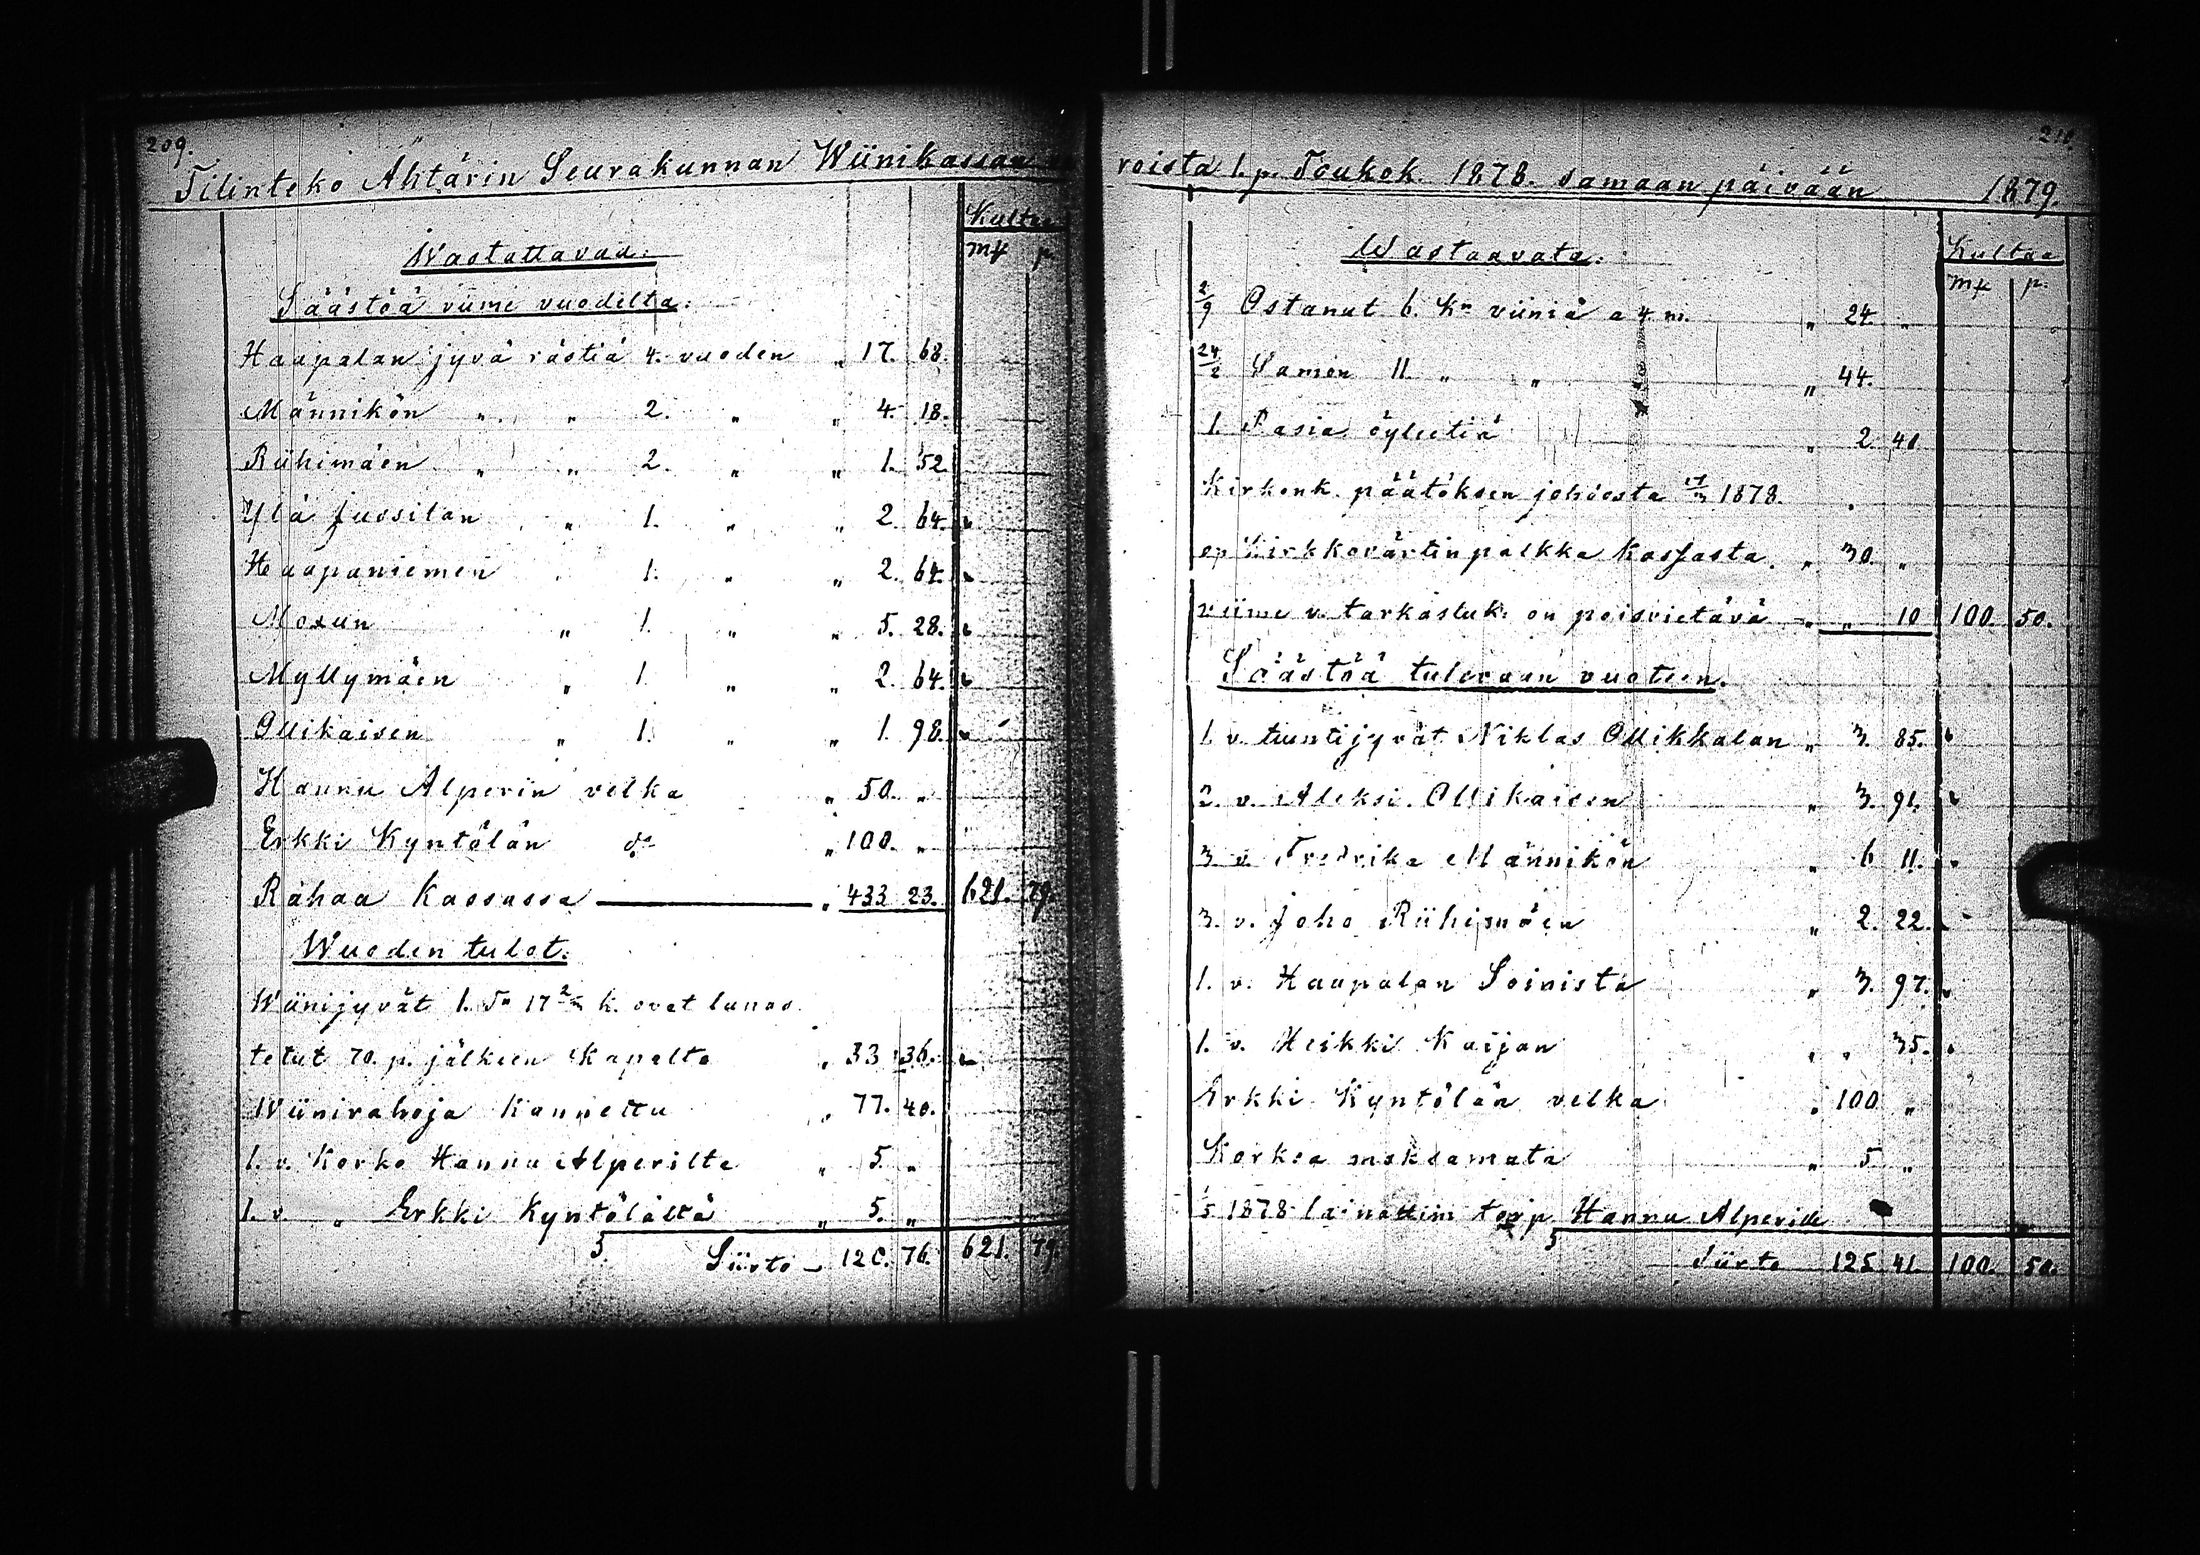 209.
Tilinteko Ähtärin Seurakunnan Wiinikassan
Kultaa
Wastattavaa.
mk p.
Säästöä viime vuodelta.
Haapalan jyvä rästiä 4. vuoden " 17. 68.
Männikön " " 2. " " 4. 18.
Riihimäen " " 2. " " 1. 52.
Ylä Jussilan " 1. " " 2. 64.
Haapaniemen " 1. " " 2. 64.
Moxun " 1. " " 5. 28.
Myllymäen " 1. " " 2. 64.
Ollikaisen " 1. " " 1. 98.
Hannu Alperin velka " 50. "
Erkki Kyntölän do " 100. "
Rahaa Kassassa " 433 23. 621. 79.
Wuoden tulot.
Wiinijyvät 1. Tn 17 k. ovat lunas
tetut 70. p. jälkeen Kapalta " 33 36.
Wiinirahoja Kannettu " 77. 40.
1. v. Korko Hannu Alperilta " 5. "
1. v. " Erkki Kyntölältä " 5. "
Siirto 120. 76. 621. 79.
211.
roista 1. p. Toukok. 1878. samaan päivään 1879.
Wastaavata.
Kultaa
mk p.
2/9 Ostanut 6. Kn viiniä a 4 m. " 24. "
24/2 Samon 11 " " " 44.
1. Rasia öylettiä " 2. 41
Kirkonk. päätöksen johdosta 1878.
on Kirkkovärtin palkka Kassasta. " 30. "
viime v. tarkastuk. on poisvietävä " " 10 100. 50.
Säästöä tulevaan vuoteen.
1. v. tuntijyvät Niklas Ollikkalan " 3. 85.
2. v. Aleksi Ollikaisen " 3. 91.
3 v. Fredrika Männikön " 6 11.
3. v. Joho Riihimäen " 2. 22.
1. v. Haapalan Soinista " 3. 97.
1. v. Heikki Kaijan " " 35.
Erkki Kyntölän velka " 100 "
Korkoa maksamata " 5 "
1/5 1878 lainattiin torp. Hannu Alperille
Siirto 125 41. 100. 50.